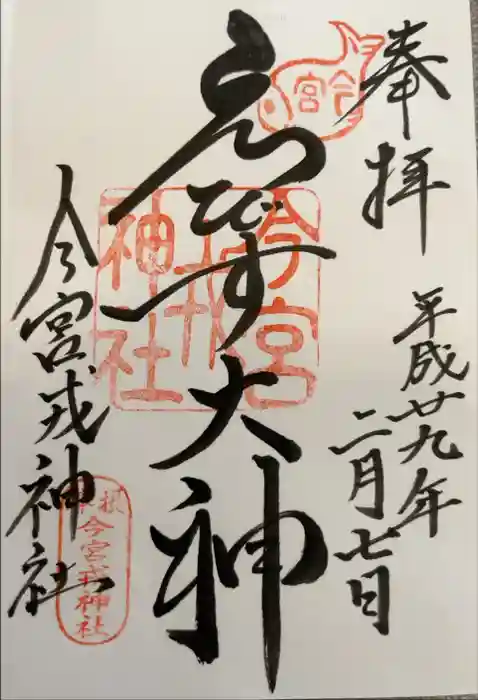 奉拝
平成廿九年
二月七日
ゑびす大神
今宮戎神社
今宮
今宮戎神社
今宮戎神社